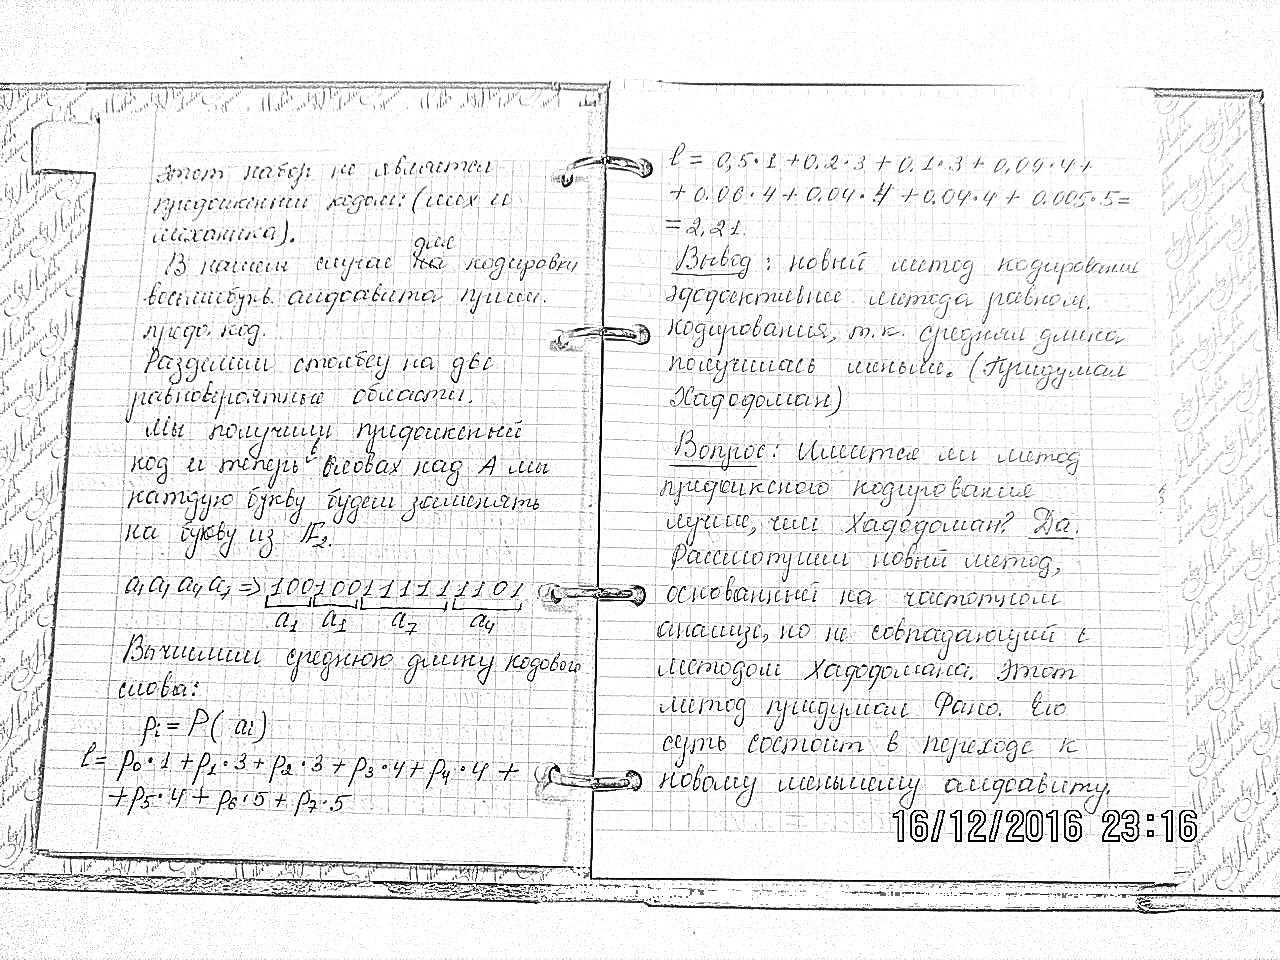 Этот набор не является
префиксным кодом: (мех и
механика).
В нашем случае на для кодировки
восьмибукв. алфавита прим.
преф. код.
Разделим столбец на две
равновероятные области.
Мы получили префиксный
код и теперь в словах над A мы
каждую букву будем заменять
на букву из F₂.
a₁a₁a₇a₄ => 1001001111 1101
a₁ a₁ a₇ a₄
Вычислим среднюю длину кодового
слова:
pᵢ = P(aᵢ)
l = p₀·1 + p₁·3 + p₂·3 + p₃·4 + p₄·4 +
+ p₅·4 + p₆·5 + p₇·5
l = 0,5·1 + 0.2·3 + 0.1·3 + 0.09·4 +
+ 0.06·4 + 0.04·4 + 0.04·4 + 0.005·5 =
= 2,21.
Вывод: новый метод кодирования
эффективнее метода равном.
кодирования, т.к. средняя длина
получилась меньше. (Придумал
Хаффман)
Вопрос: Имеется ли метод
префиксного кодирования
лучше, чем Хаффман? Да.
Рассмотрим новый метод,
основанный на частотном
анализе, но не совпадающий с
методом Хаффмана. Этот
метод придумал Фано. Его
суть состоит в переходе к
новому меньшему алфавиту.
16/12/2016 23:16